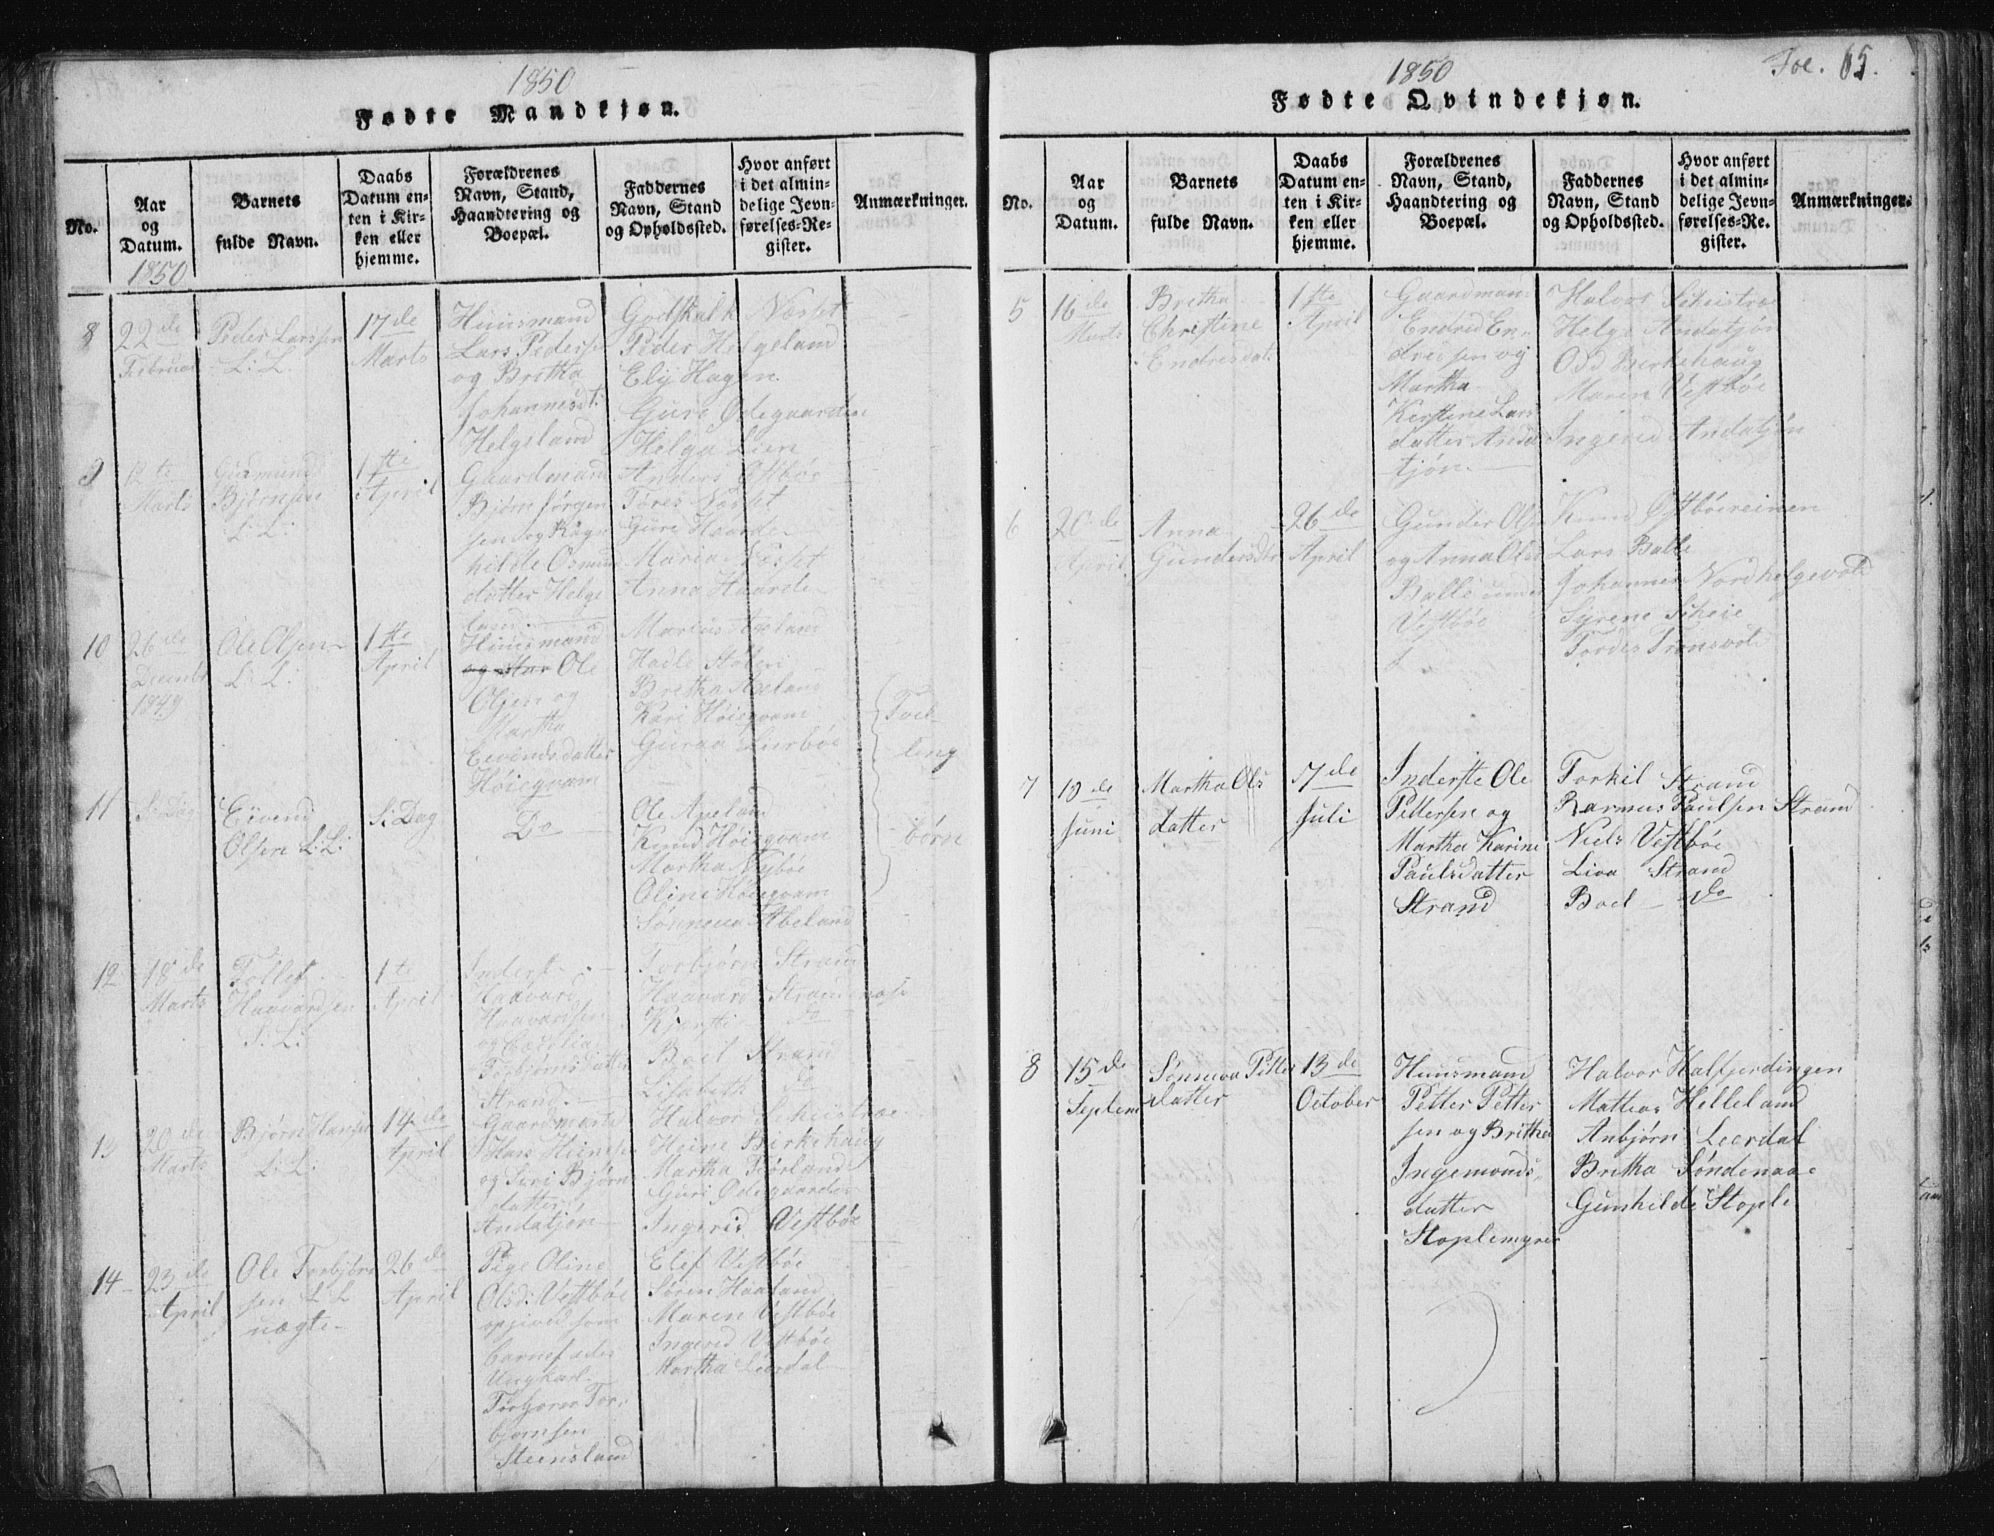 1850
Fødte Mandkjøn.
No.
Aar og Datum.
Barnets fulde Navn.
Daabs Datum enten i Kirken eller hjemme.
Forældrenes Navn, Stand, Haandtering og Boepæl.
Faddernes Navn, Stand og Opholdssted.
Hvor anført i det almindelige Jevnførelses-Register.
Anmærkninger.
1850
8
22de
Februar
Peder Larssen
L. L.
17de
Marts
Huusmand
Lars Pedersen
og Britha
Johannesdt:
Helgeland
Godskalk Næset
Peder Helgeland
Eli Hagen
Guri Ødegaarden
Helga Lien
9
12te
Marts
Gudmund
Bjørnsen
L: L:
1ste
April
Gaardmand
Bjørn Jørgen
sen og Ragn
hilde Osmun
datter Helge
land.
Anders Østbøe
Tores Næset
Guri Haarde
Maria Næset
Anna Haarde
10
26de
Decembr
1849
Ole Olsen
L: L:
1ste
April
Huusmand
Ole
Olsen og
Martha
Eevindsdatter
Høiegvam
Marius Apeland
Hadle Stølen
Bretha Abeland
Kari Høiegvam
Guraa Lurbøe
Tvel
ling
11
S: Dag
Eivend
Olsen L: L:
S: Dag
Do
Ole Apeland
Knud Høiegvam
Martha Nybøe
Oline Høiegvam
Sønneva Abeland
børn
12
18de
Marts
Tollef
Haavardsen
L: L:
1te
April
Inderst
Haavard
Haavardsen
og
Torbjørnsdatter
Strand
Torbjørn Strand
Haavard Strandenæse
Kjersti do
Boel Strand
Lisabeth do
13
20de
Marts
Bjørn Hansen
L: L:
14de
April
Gaardmand
Hans Heinesen
og Siri Bjørn
datter
Andatjøn
Halvor Scheistrae
Heine Birkehaug
Martha Tjørland
Guri Ødegaarden
Ingerid Vestbøe
14
23de
April
Ole Torbjørn
sen L L
uægte
26de
April
Pige Oline
Olsd: Vestbøe
opgived som
barnefader
Ungkarl
Torbjørn Tor
bjørnsen
Steensland
Elef Vestbøe
Søren Haaland
Maren Vestbøe
Ingerid Vestbøe
Martha Leerdal
1850
Fol. 65.
Fødte Qvindekjøn.
No.
Aar og Datum.
Barnets fulde Navn.
Daabs Datum enten i Kirken eller hjemme.
Forældrenes Navn, Stand, Haandtering og Boepæl.
Faddernes Navn, Stand og Opholdssted.
Hvor anført i det almindelige Jevnførelses-Register.
Anmærkninger.
5
16de
Marts
Bretha
Christine
Endresdat:
1ste
April
Gaardman
Endred En
dresen og
Martha
Kerstine Lars
datter Anda
tjøn
Halvor Scheistrae
Helge Andatjøn
Odd Birkehaug
Maren Vestbøe
Ingerid Andatjøn
6
20de
April
Anna
Gundersdtr
26de
April
Gunder Olsen
og Anna Olsd
Balle under
Vestbøe
Knud Østbøereinen
Lars Balle
Johannes Nordhelgevold
Syrene Scheie
Tordes Tronsvold
7
10de
Juni
Martha Ols
datter
7de
Juli
Inderste Ole
Pettersen og
Martha Karine
Paulsdatter
Strand
Torkil Strand
Rasmus Paulsen Strand
Niels Vestbøe
Liva Strand
Boel do
8
15de
Septem
Sønneva Petter
datter
13de
October
Huusmand
Petter Petter
sen og Britha
Ingemonds
datter
Stoplemyren
Halvor Halfjerdingen
Mathias Helleland
Anbjørn Leerdal
Britha Søndenaae
Gunhilde Stople